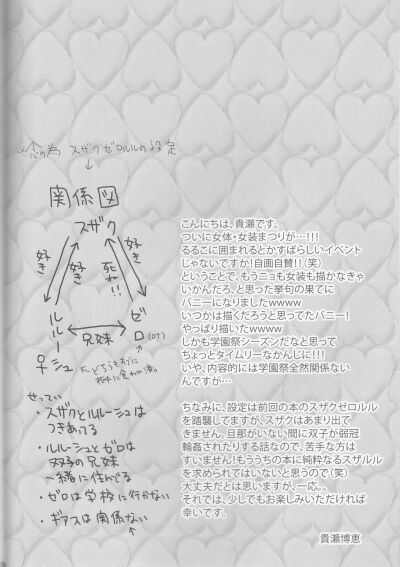 ※念の為 スザクゼロルルの設定
↓
関係図
スザク
好き
好き
好き
死ね!!
ルルーシュ
♀
兄妹
ゼロ
(DT)
せってい
・スザクとルルーシュは
つきあってる
・ルルーシュとゼロは
双子の兄妹
一緒に住んでる
・ゼロは学校に行かない
・ギアスは関係ない
こんにちは、貴瀬です。
ついに女体・女装まつりが…!!!
るるこに囲まれるとかすばらしいイベント
じゃないですか!自画自賛!!(笑)
ということで、もうニョも女装も描かなきゃ
いかんだろ、と思った挙句の果てに
バニーになりましたwwww
いつかは描くだろうと思ってたバニー!
やっぱり描いたwwww
しかも学園祭シーズンだなと思って
ちょっとタイムリーなかんじに!!!
いや、内容的には学園祭全然関係ない
んですが…
ちなみに、設定は前回の本のスザクゼロルル
を踏襲してますが、スザクはあまり出て
きません。旦那がいない間に双子が弱冠
輪姦されたりする話なので、苦手な方は
すいません!もううちの本に純粋なるスザルル
を求められてはいないと思うので(笑)
大丈夫だとは思いますが、一応。
それでは、少しでもお楽しみいただければ
幸いです。
貴瀬博恵